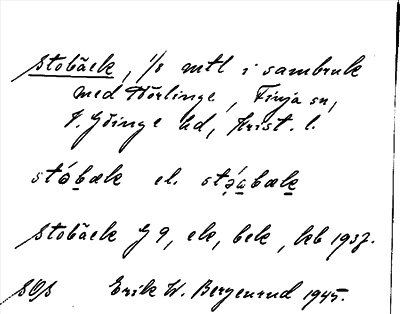 Stobäck, 1/8 mtl i sambruk
med Dörlinge, Finja sn,
V. Göinge hd, Krist. l.
stóbæk el. stáabæk
Stobäck G 9, ek, bek, kb 1937.
SOS Erik W. Bergenrud 1945.